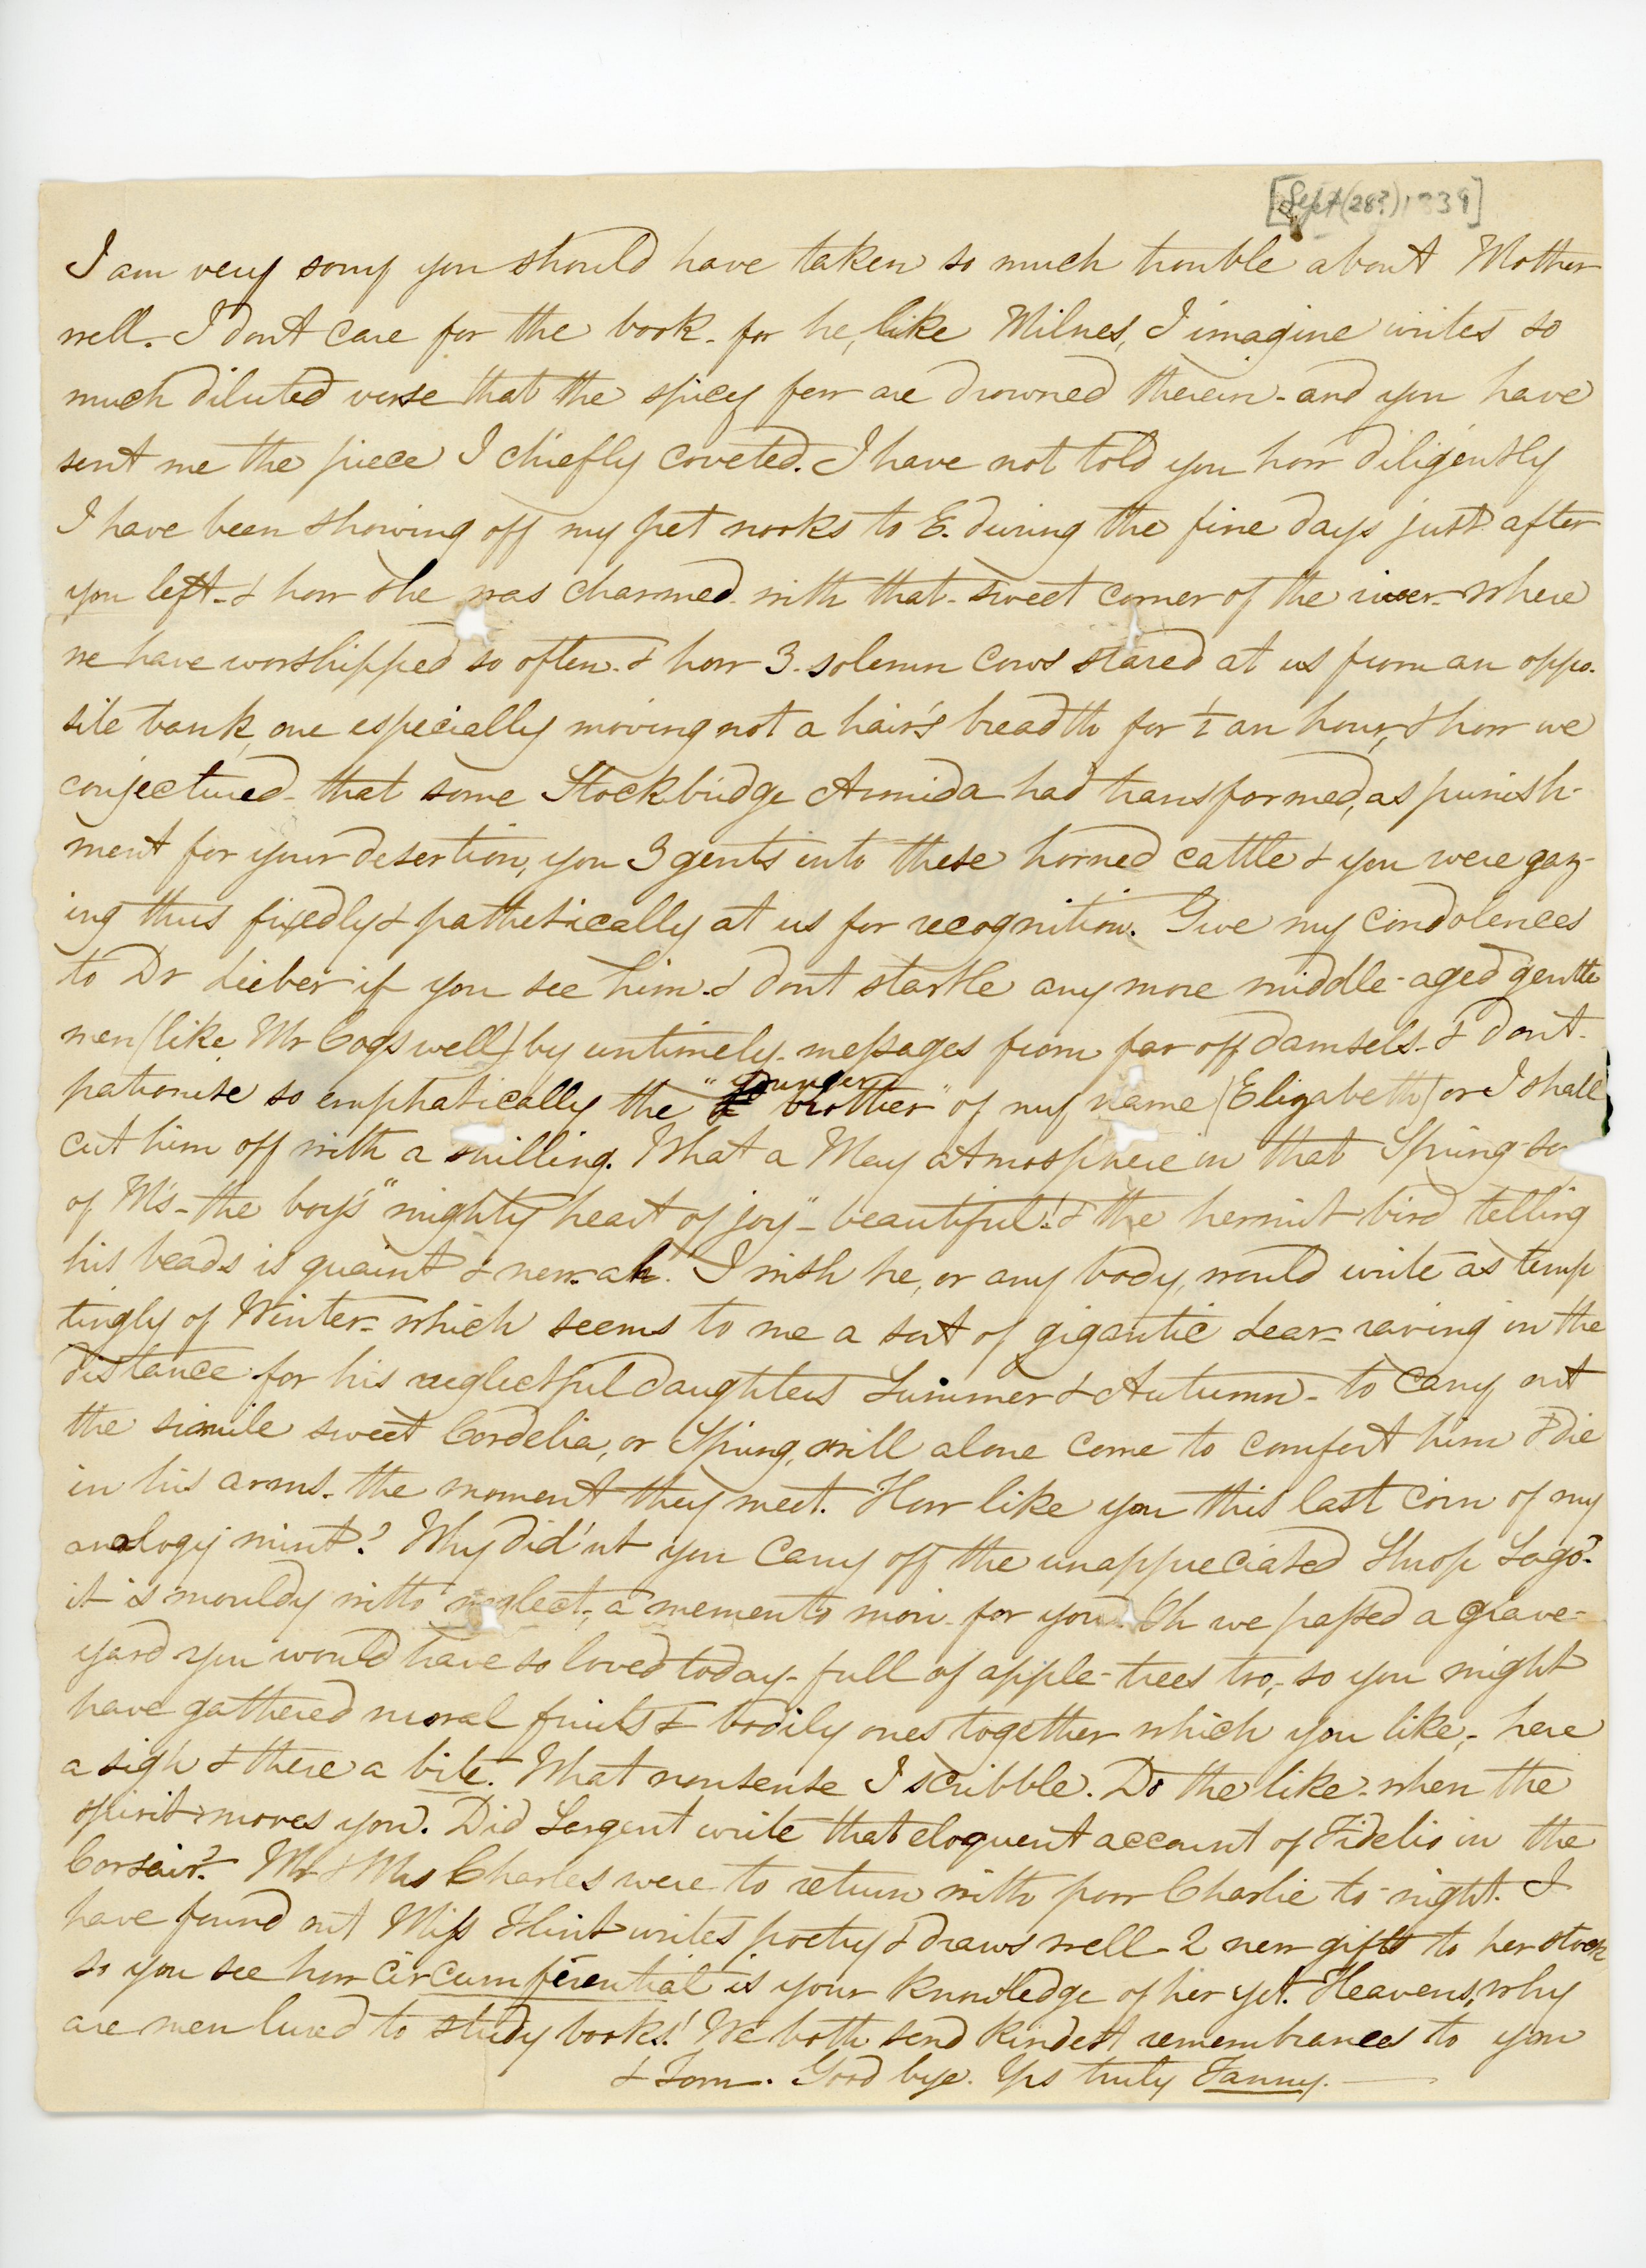 [Sept(28?) 1839]
I am very sorry you should have taken so much trouble about Mother-
well. I dont care for the book. for he, like Milnes, I imagine writes so
much diluted verse that the spicey few are drowned therein - and you have
sent me the piece I chiefly coveted. I have not told you how diligently
I have been showing off my pet nooks to E. during the fine days just after
you left - & how she was charmed with that sweet corner of the river - where
we have worshipped so often. & how 3. solemn cows stared at us from an oppo-
site bank, one especially moving not a hair's breadth for ½ an hour, & how we
conjectured that some Stockbridge Armida had transformed, as punish-
ment for your desertion, you 3 gents into these horned cattle & you were gaz-
ing thus fixedly & pathetically at us for recognition. Give my condolences
to Dr Lieber if you see him & dont startle any more middle-aged gentle
men (like Mr Cogswell) by untimely messages from far off damsels - & dont
patronise so emphatically the "younger brother" of my name (Elizabeth) or I shall
cut him off with a shilling. What a May atmosphere in that Spring-so
of M's - the boy's "mighty heart of joy" - beautiful! & the hermit-bird telling
his beads is quaint & new - ah! I wish he, or any body, would write as temp
tingly of Winter - which seems to me a sort of gigantic Lear - raving in the
distance for his neglectful daughters Summer & Autumn - to carry out
the simile sweet Cordelia, or Spring, will alone come to comfort him & die
in his arms. the moment they meet. How like you this last coin of my
analogy mint? Why did'nt you carry off the unappreciated Shop Sago?
it is mouldy with neglect, a memento mori for you. Oh we passed a grave-
yard you would have so loved today - full of apple-trees too, - so you might
have gathered moral fruits & bodily ones together which you like, - here
a sigh & there a bite. What nonsense I scribble. Do the like - when the
spirit moves you. Did Sargent write that eloquent account of Fidelio in the
Corsair? Mr & Mrs Charles were to return with poor Charlie to-night. I
have found out Miss Flint writes poetry & draws well - 2 new gifts to her stock
so you see how circumferential is your knowledge of her yet. Heavens, why
are men lured to study books! We both send kindest remembrances to you
& Tom. Good bye. Yrs truly Fanny.